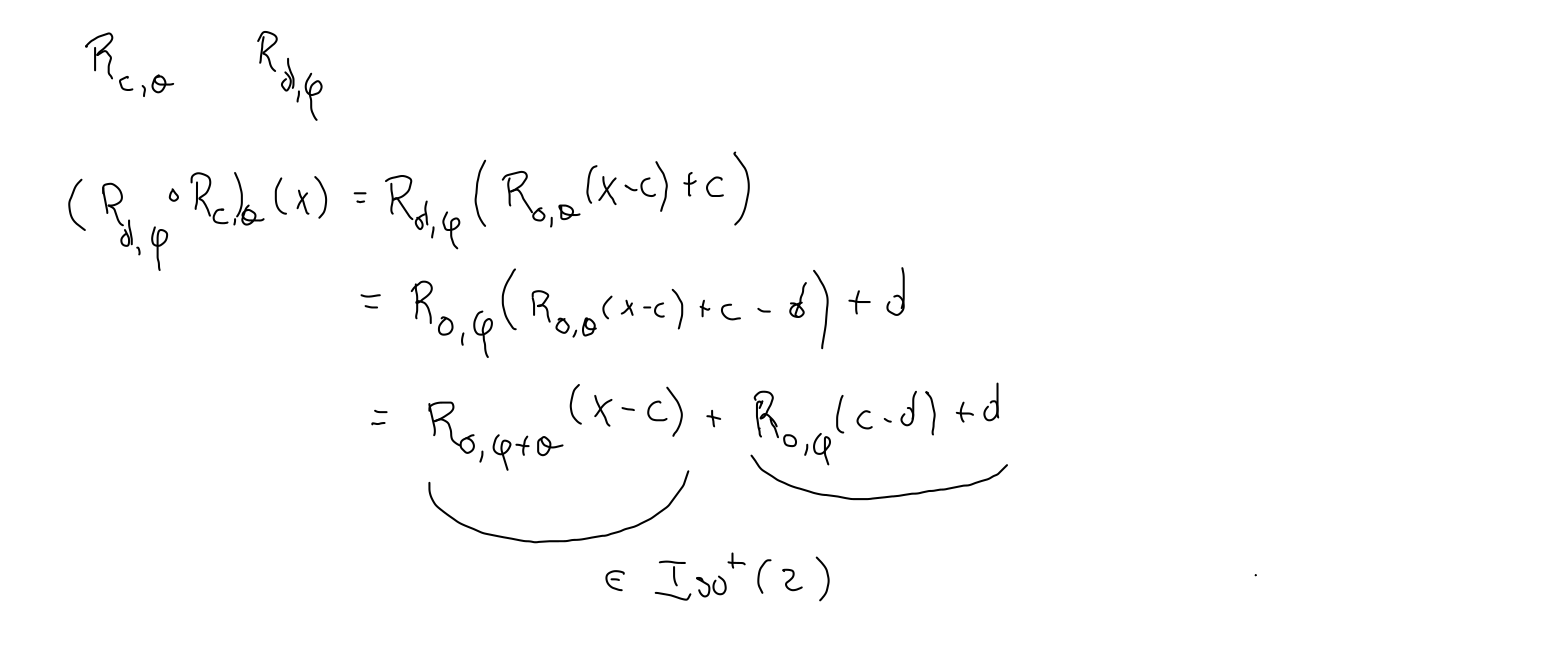 R_{c,θ} R_{d,φ}
(R_{d,φ} ∘ R_{c,θ})(x) = R_{d,φ}(R_{0,θ}(x-c)+c)
= R_{0,φ}(R_{0,θ}(x-c)+c-d)+d
= R_{0,φ+θ}(x-c) + R_{0,φ}(c-d)+d
∈ Iso⁺(2)